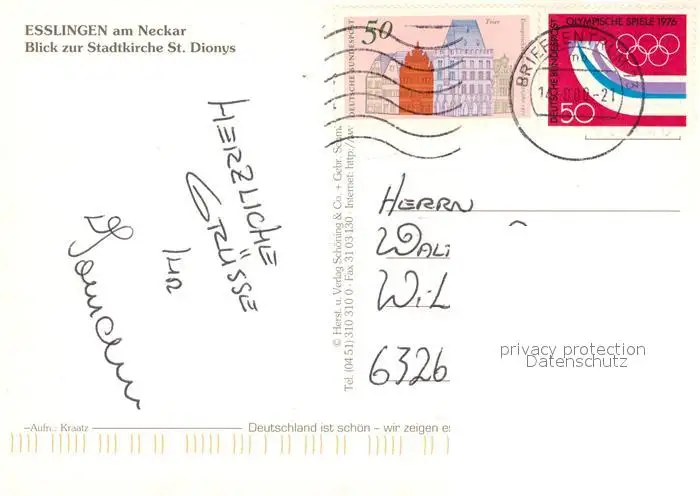 ESSLINGEN am Neckar
Blick zur Stadtkirche St. Dionys
50
Trier
DEUTSCHE BUNDESPOST
OLYMPISCHE SPIELE 1976
DEUTSCHE BUNDESPOST
50
BRIEFZENTRUM
-21
HERZLICHE
GRÜSSE
IHR
© Herst. u. Verlag Schöning & Co. + Gebr. Schm
Tel. (04 51) 310 310 0 · Fax 31 03 130 · Internet: http://
HERRN
WALT
WIL
6326
privacy protection
Datenschutz
–Aufn.: Kraatz
Deutschland ist schön – wir zeigen es